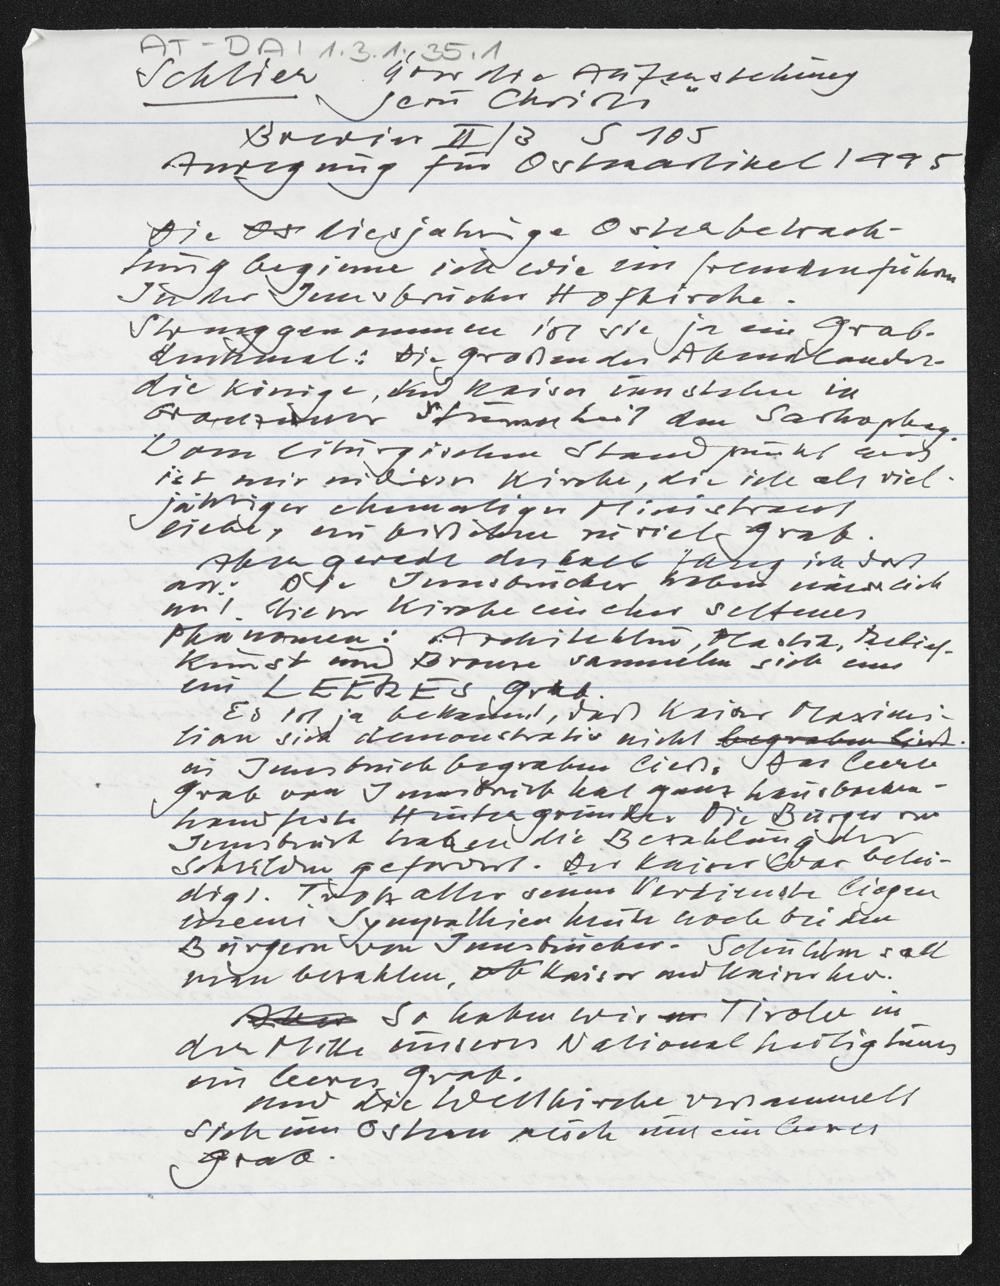 AT-DAI 1.3.1.35.1
Schlier Über die Auferstehung
Jesu Christi
Brevier II/3 S 105
Anregung für Osterartikel 1995
Die Os diesjährige Osterbetrach-
tung beginne ich wie ein Fremdenführer
In der Innsbrucker Hofkirche.
Strenggenommen ist sie ja ein Grab-
denkmal: Die großen des Abendlandes
die Könige, und Kaiser umstehen in
bronzener Stummheit den Sarkophag.
Vom liturgischen Standpunkt aus
ist mir in dieser Kirche, die ich als viel-
jähriger ehemaliger Ministrant
liebe, ein bißchen zu viel Grab.
Aber gerade deshalb fang ich dort
an: Die Innsbrucker haben nämlich
mit dieser Kirche ein eher seltenes
Phänomen: Architektur, Plastik, Relief-
kunst und Bronze sammeln sich um
ein LEERES Grab.
Es ist ja bekannt, daß Kaiser Maximi-
lian sich demonstrativ nicht begraben ließ.
in Innsbruck begraben ließ. Das leere
Grab von Innsbruck hat ganz hausbacken-
handfeste Hintergründe. Die Bürger von
Innsbruck haben die Bezahlung der
Schulden gefordert. Der Kaiser war belei-
digt. Trotz aller seiner Verdienste liegen
unsere Sympathien heute noch bei den
Bürgern von Innsbrucker. Schulden soll
man bezahlen, ob Kaiser und Kaiser her.
Aber So haben wir Tiroler in
der Mitte unseres Nationalheiligtums
ein leeres Grab.
und die Weltkirche versammelt
sich um Ostern auch um ein leeres
Grab.